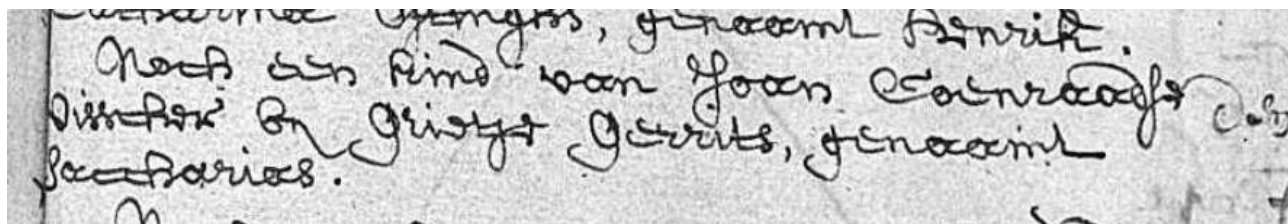 Catharina, genaamt Henrik.
Noch een kind van Joan Coenraadse
Visscher by Grietje Gerrits, genaamt
Saccharias.